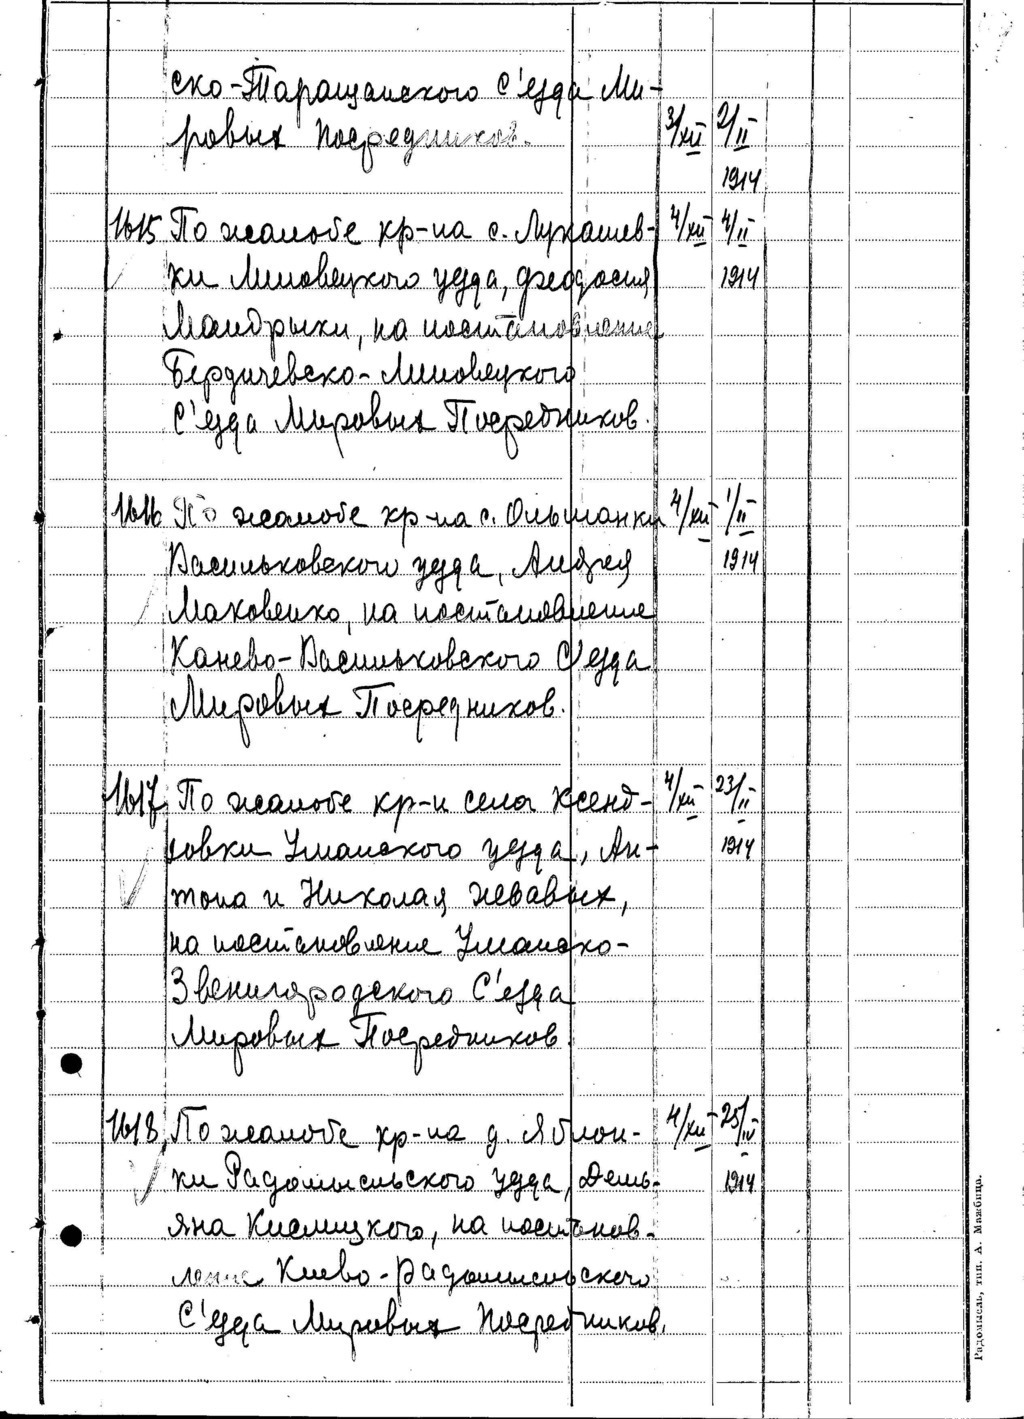 ско-Таращанского С'езда Ми-
ровых Посредников. 3/XII 2/II
1914
1615 По жалобе кр-на с. Лукашев- 4/XII 4/II
ки Липовецкого уезда, Феодосия 1914
Мандрыки, на постановление
Бердичевско-Липовецкого
С'езда Мировых Посредников.
1616 По жалобе кр-на с. Ольшанки 4/XII 1/II
Васильковского уезда, Андрея 1914
Маковенко, на постановление
Канево-Васильковского С'езда
Мировых Посредников.
1617 По жалобе кр-н села Ксенд- 4/XII 23/II
зовки Уманского уезда, Ан- 1914
тона и Николая
на постановление Уманско-
Звенигородского С'езда
Мировых Посредников
1618 По жалобе кр-на д. Яблон- 4/XII 25/IV
ки Радомысльского уезда, Демь- 1914
яна Кислицкого, на постанов-
ление Киево-Радомысльского
С'езда Мировых Посредников.
Радомысль, тип. А. Мажбица.